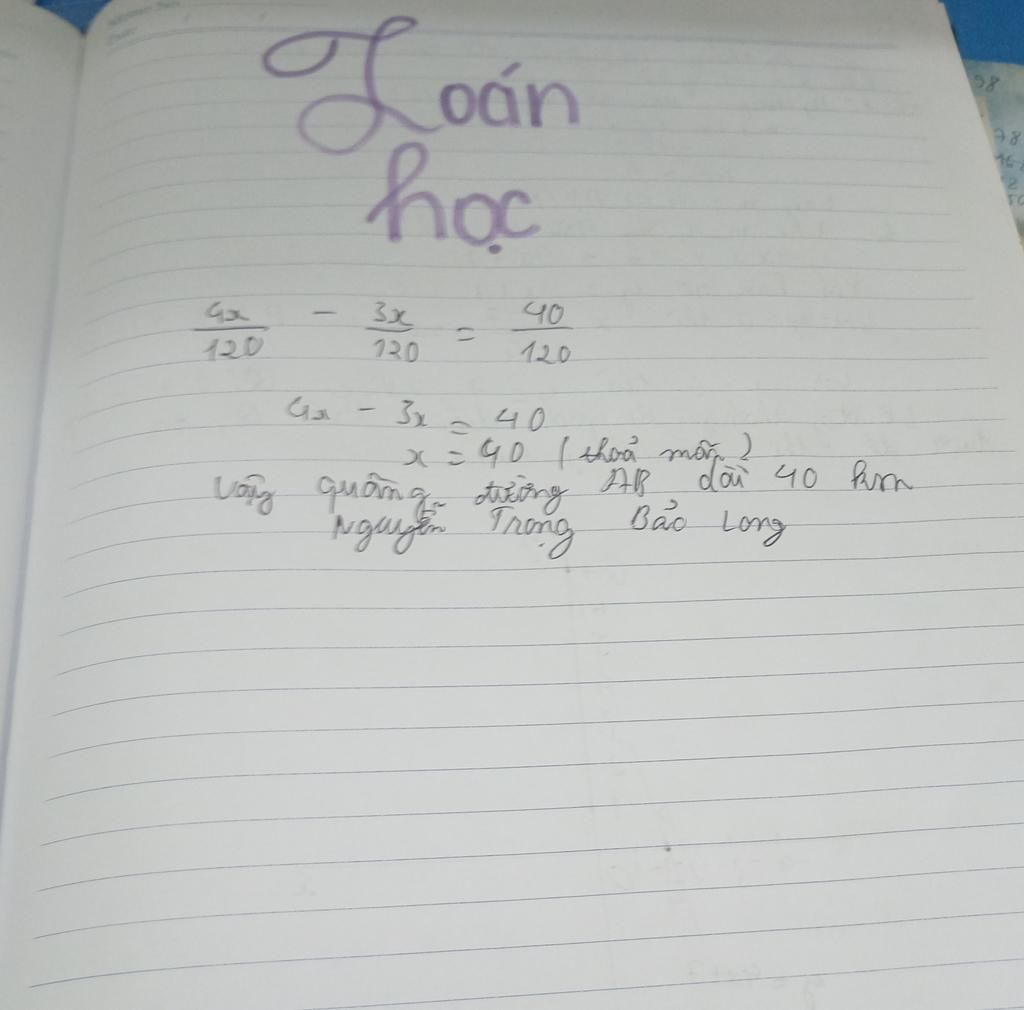 Toán
học
4x/120 - 3x/120 = 40/120
4x - 3x = 40
x = 40 (thoả mãn)
Vậy quãng đường AB dài 40 km
Nguyễn Trọng Bảo Long
98
78